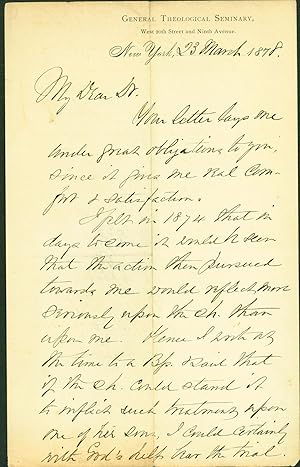 GENERAL THEOLOGICAL SEMINARY,
West 20th Street and Ninth Avenue.
New York, 23 March 1878.
My Dear Dr.
Your letter lays me
under great obligations to you,
since it gives me real com-
fort & satisfaction.
I felt in 1874 that in
days to come it would be seen
that the action then pursued
towards me would reflect more
seriously upon the Ch. than
upon me. Hence I wrote at
the time to a Bp. & said that
if the Ch. could stand it
to inflict such treatment upon
one of her sons, I could certainly
with God's help bear the trial.